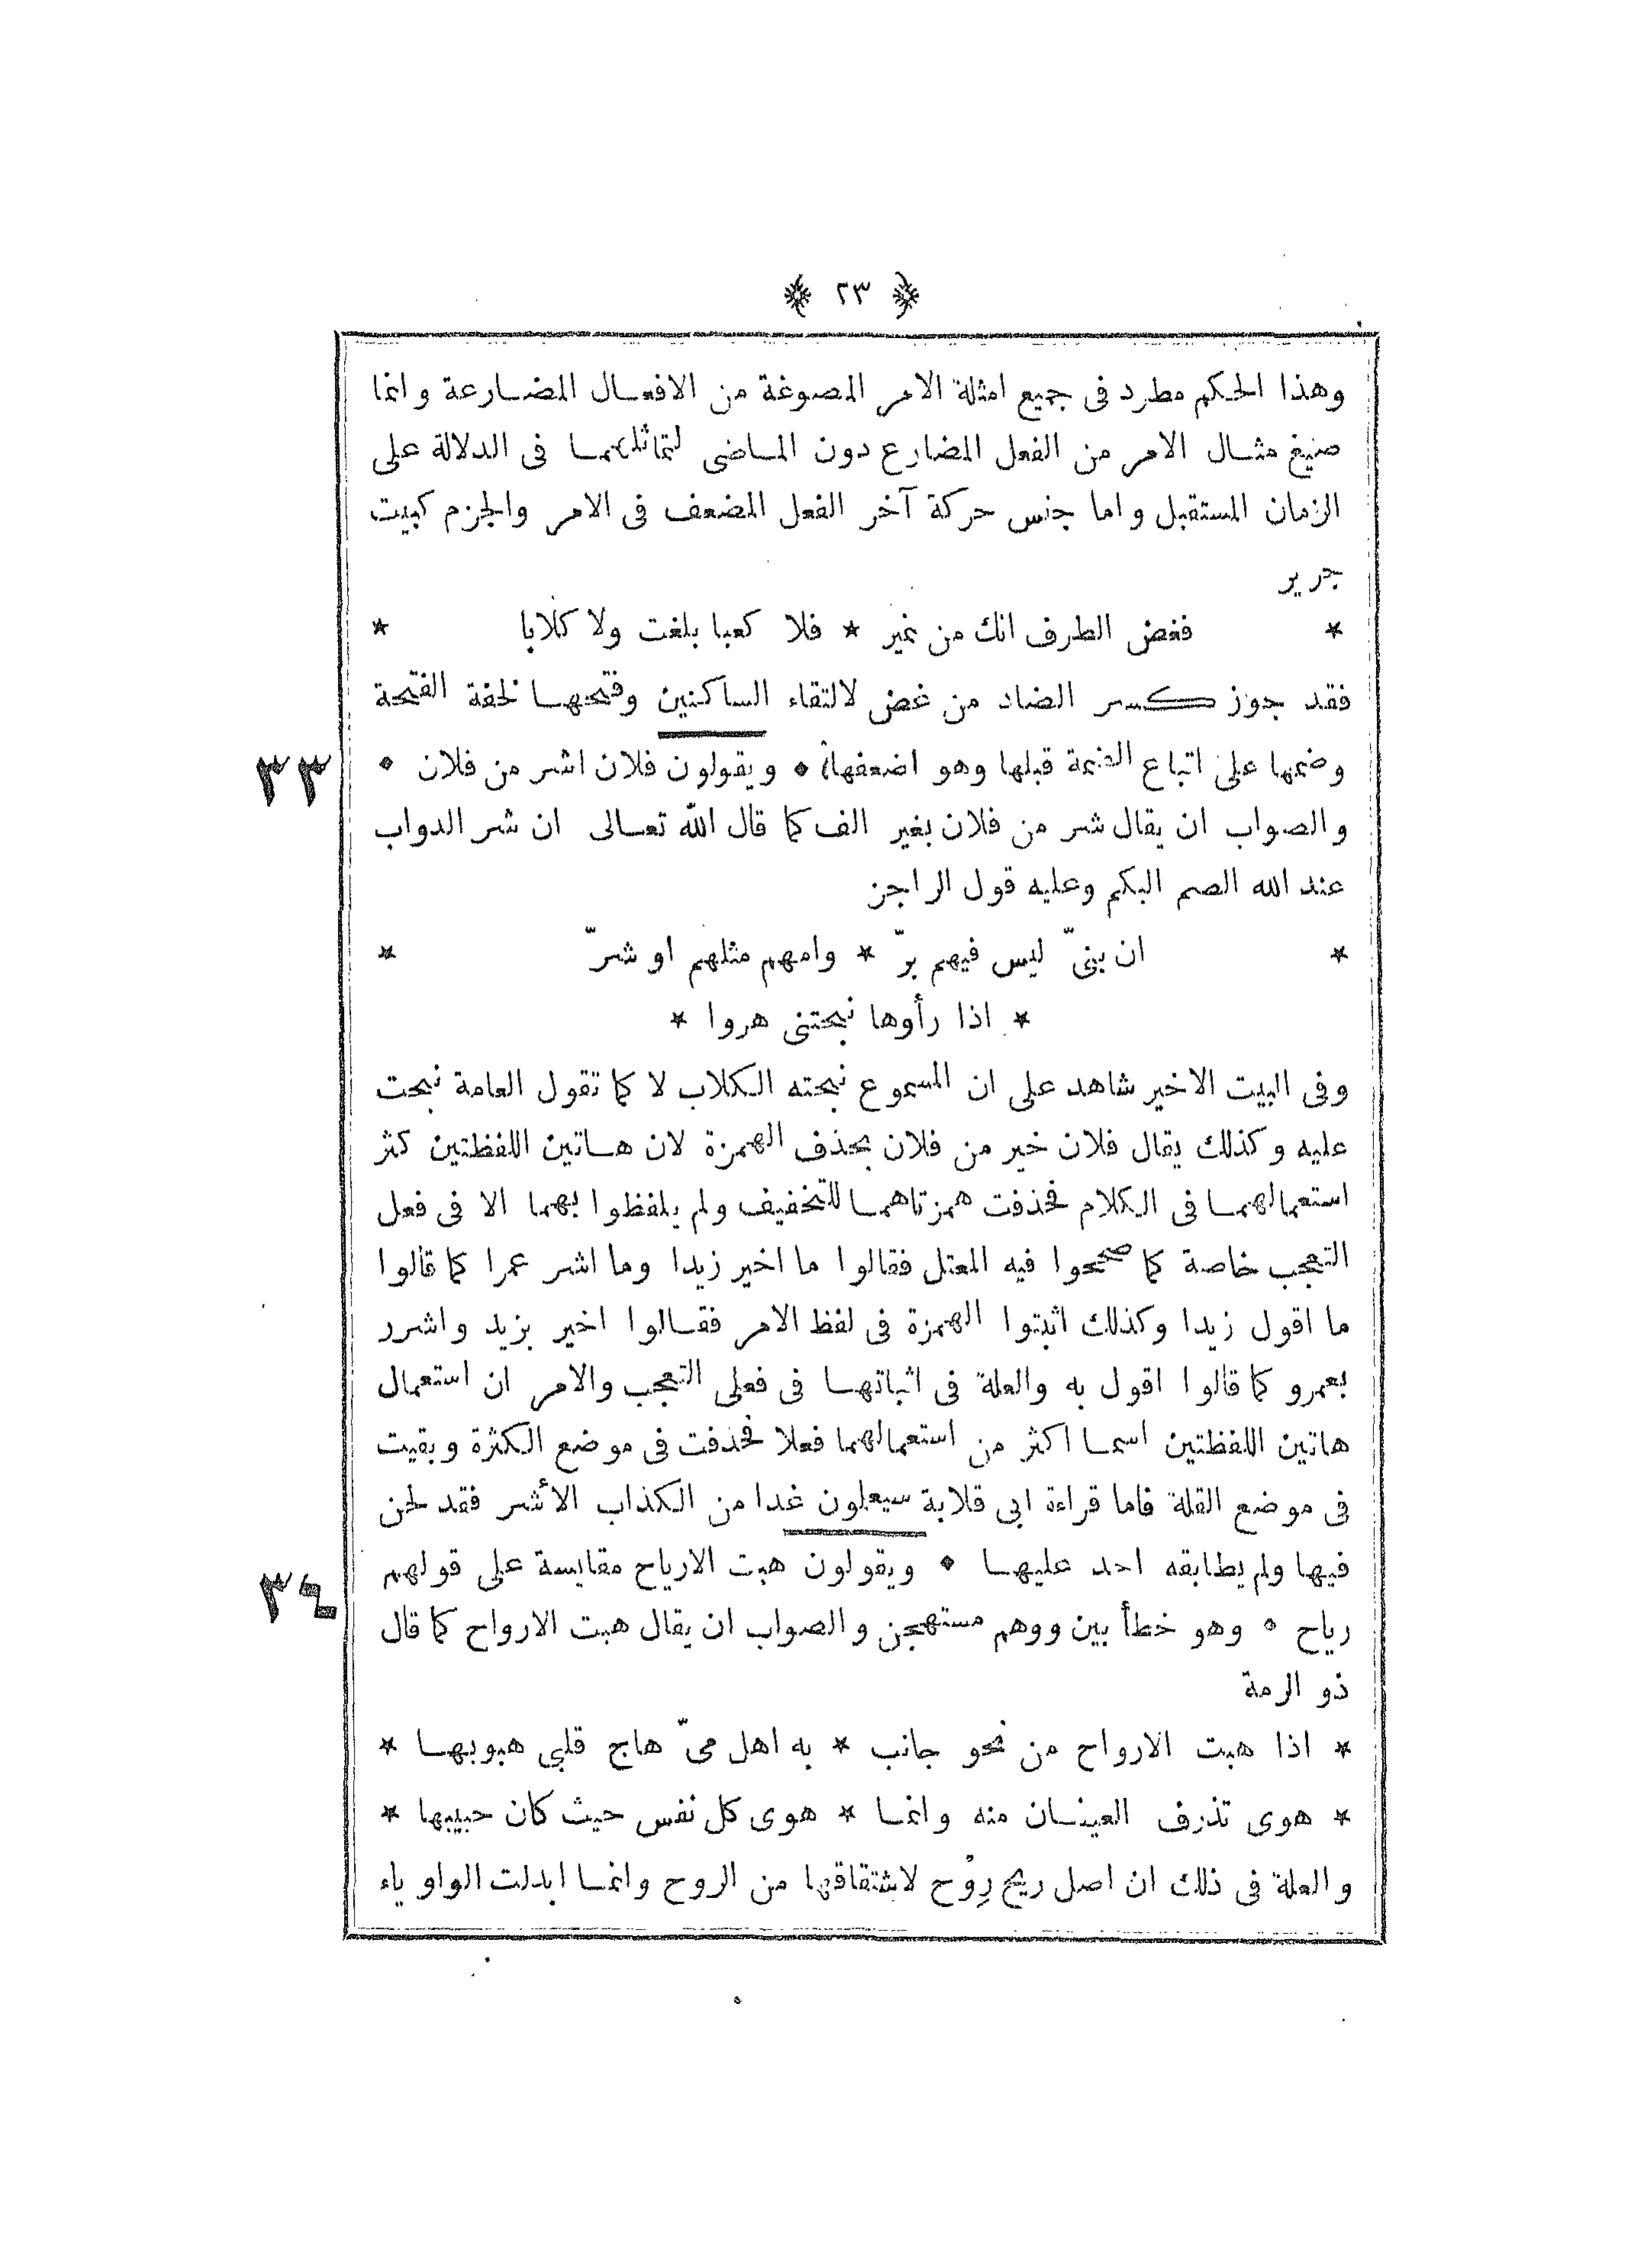 ﴿ ٢٣ ﴾
وهذا الحكم مطرد فى جميع امثلة الامر المصوغة من الافعال المضارعة وانما
صيغ مثال الامر من الفعل المضارع دون الماضى لتماثلهما فى الدلالة على
الزمان المستقبل واما جنس حركة آخر الفعل المضعف فى الامر والجزم كبيت
جرير
* فغض الطرف انك من نمير * فلا كعبا بلغت ولا كلابا *
فقد جوز كسر الضاد من غض لالتقاء الساكنين وفتحها لخفة الفتحة
٣٣ وضمها على اتباع الضمة قبلها وهو اضعفها) ٠ ويقولون فلان اشر من فلان ٠
والصواب ان يقال شر من فلان بغير الف كما قال الله تعالى ان شر الدواب
عند الله الصم البكم وعليه قول الراجز
* ان بنىّ ليس فيهم برّ * وامهم مثلهم او شرّ *
* اذا رأوها نبحتنى هروا *
وفى البيت الاخير شاهد على ان المسموع نبحته الكلاب لا كما تقول العامة نبحت
عليه وكذلك يقال فلان خير من فلان بحذف الهمزة لان هاتين اللفظتين كثر
استعمالهما فى الكلام فحذفت همزتاهما للتخفيف ولم يلفظوا بهما الا فى فعل
التعجب خاصة كما صححوا فيه المعتل فقالوا ما اخير زيدا وما اشر عمرا كما قالوا
ما اقول زيدا وكذلك اثبتوا الهمزة فى لفظ الامر فقالوا اخير بزيد واشرر
بعمرو كما قالوا اقول به والعلة فى اثباتها فى فعلى التعجب والامر ان استعمال
هاتين اللفظتين اسما اكثر من استعمالهما فعلا فحذفت فى موضع الكثرة وبقيت
فى موضع القلة فاما قراءة ابى قلابة سيعلون غدا من الكذاب الأشر فقد لحن
٣٤ فيها ولم يطابقه احد عليها ٠ ويقولون هبت الارياح مقايسة على قولهم
رياح ٠ وهو خطأ بين ووهم مستهجن والصواب ان يقال هبت الارواح كما قال
ذو الرمة
* اذا هبت الارواح من نحو جانب * به اهل مىّ هاج قلبى هبوبها *
* هوى تذرف العينان منه وانما * هوى كل نفس حيث كان حبيبها *
والعلة فى ذلك ان اصل ريح رِوْح لاشتقاقها من الروح وانما ابدلت الواو ياء